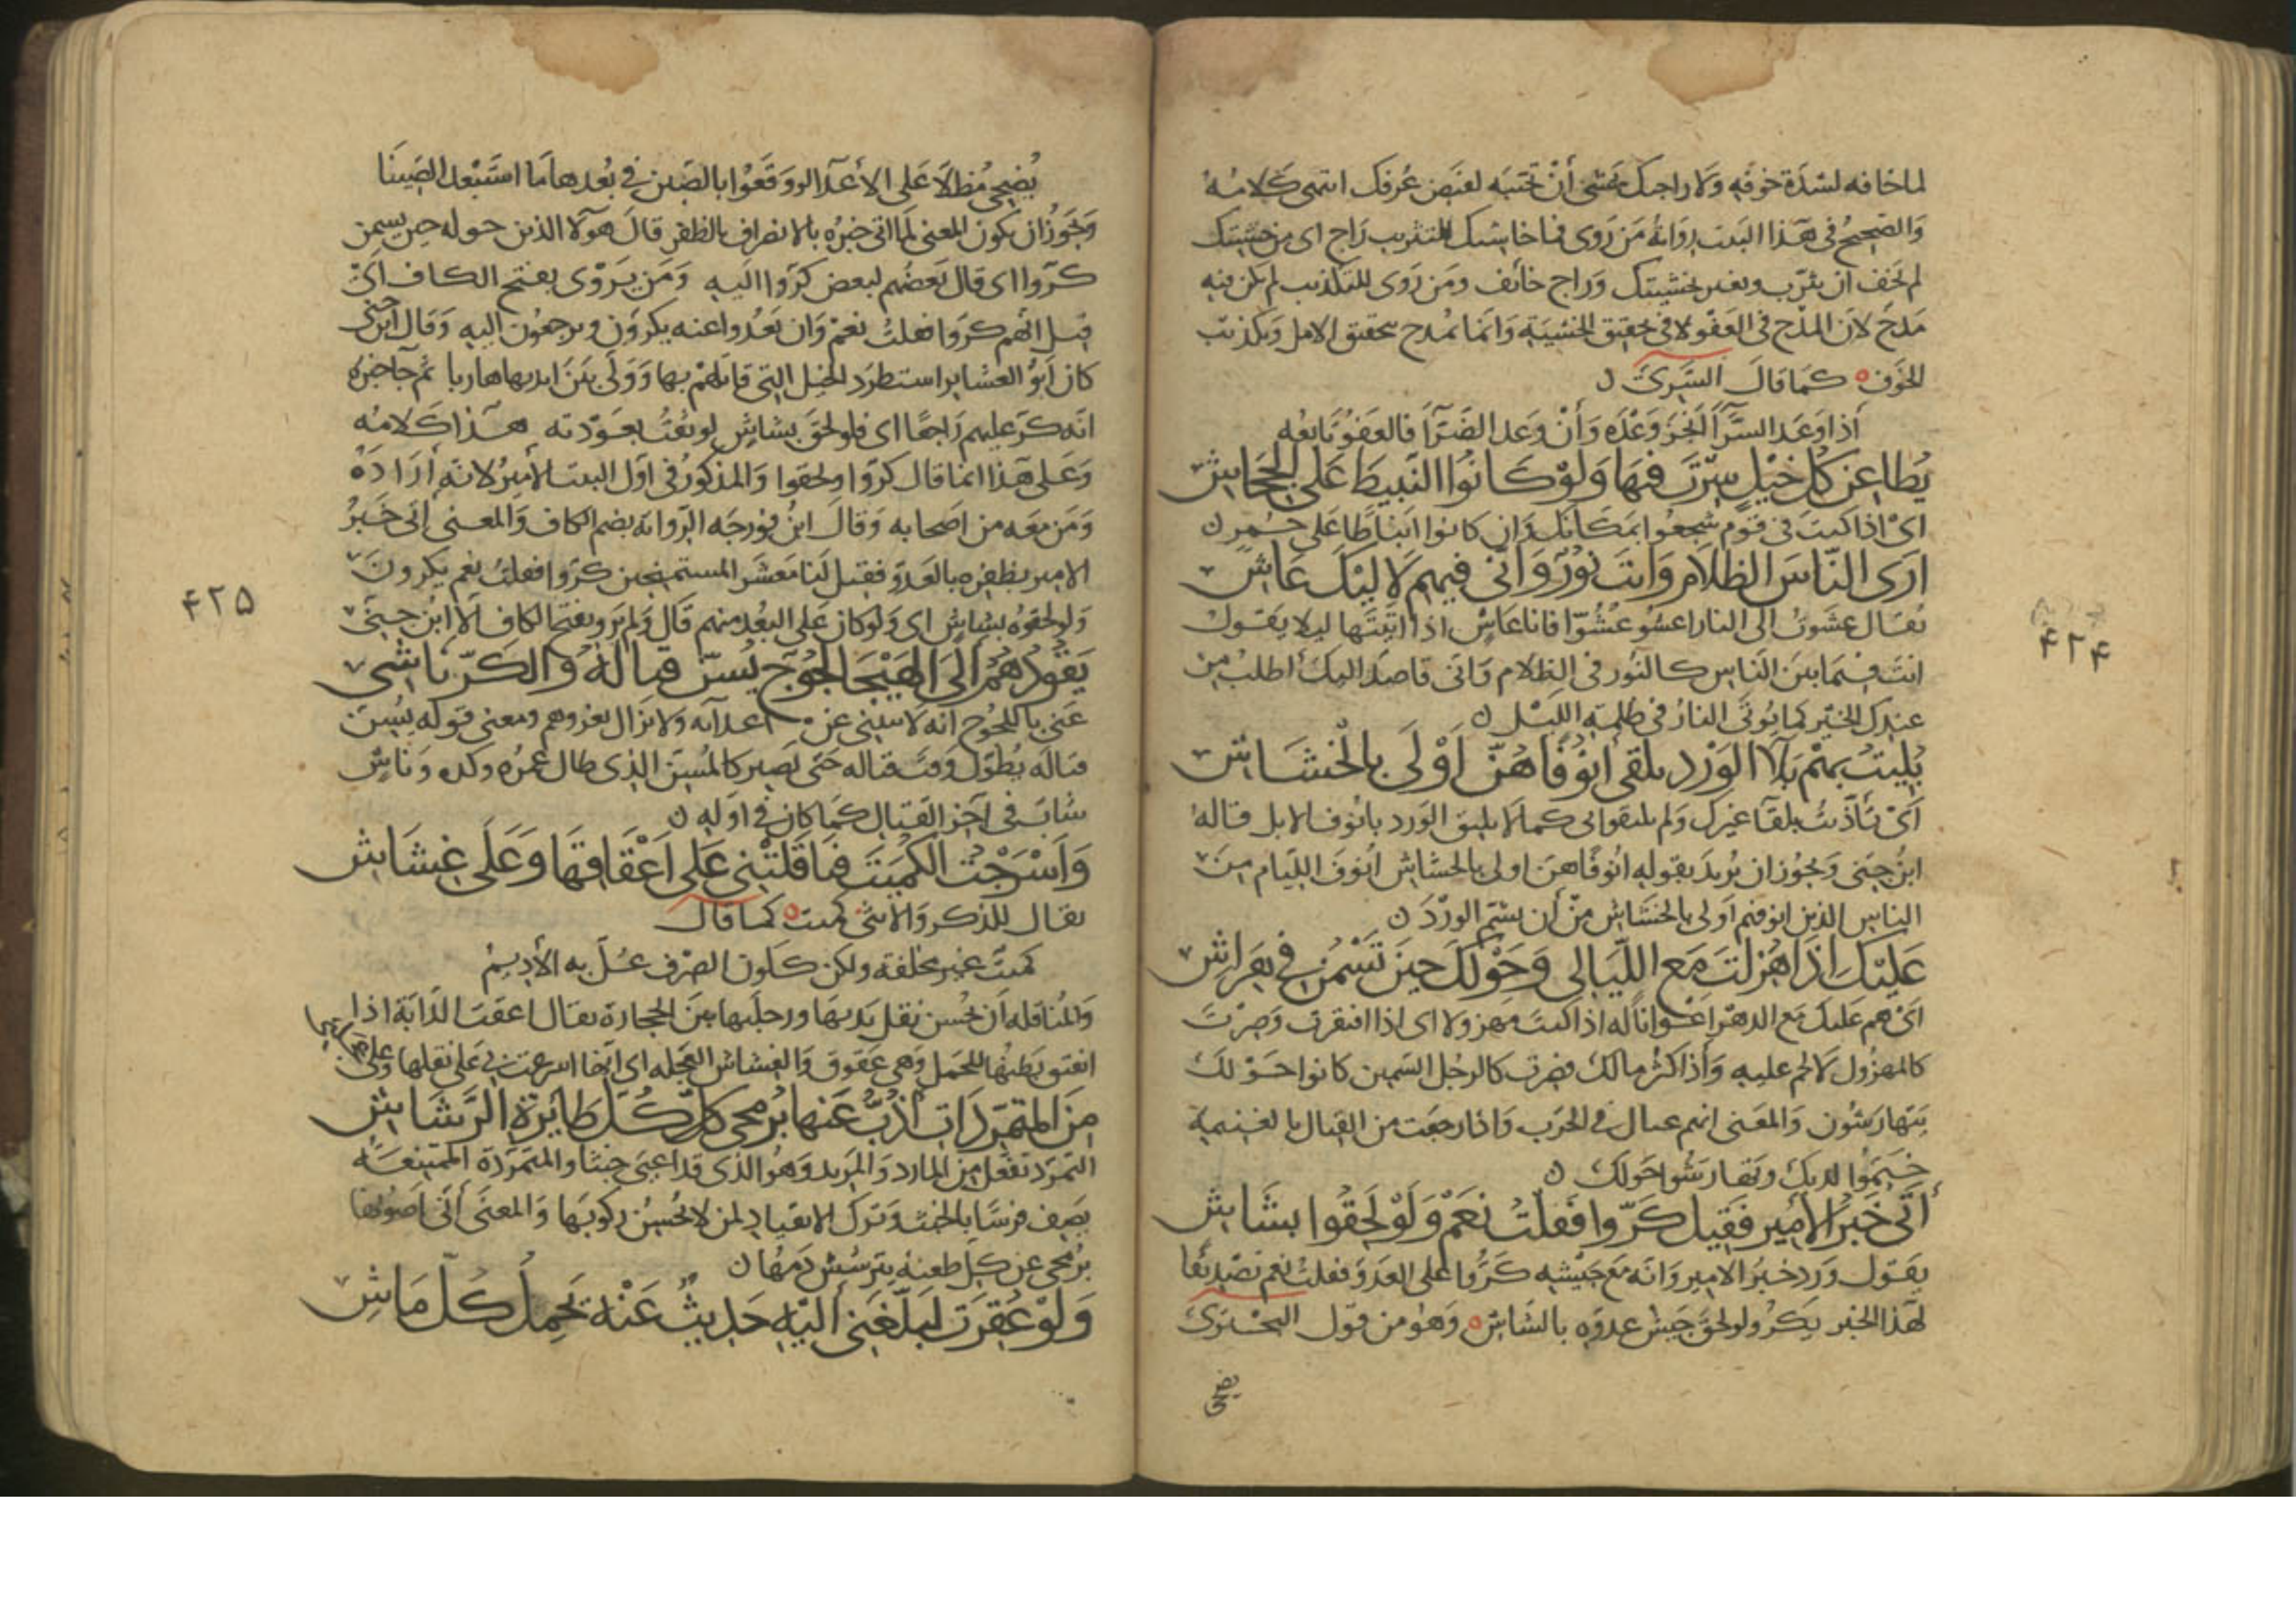 لما خافه لشدة خوفه ولا راجيك يخشى أن تخيبه لفيض عُرفك انتهى كلامه
والصحيح في هذا البيت رواية من روى فما خاشيك للتثريب راج اى من خشيتك
لم يخف ان يثرّب ويعير بخشيتك وراج خائف ومن روى للتكذيب لم يكن فيه
مدح لان المدح في العفو لا في تحقيق الخشية وانما يمدح بتحقيق الامل وتكذيب
الخوف كما قال السري
اذا وعد السرّآ انجز وعده وان وعد الضرّآ فالعفو مانعه
يُطاعن كل خيل سِرتَ فيها ولو كانوا النبيط على الجحاش
اى اذا كنت في قوم شجعوا بمكانك وان كانوا انباطا على حمر
ارى الناس الظلام وانت نور وانى فيهم لاليك عاش
يقال عشوت الى النار اعشو عشوّا فانا عاش اذا اتيتها ليلا يقول
انت فيما بين الناس كالنور في الظلام وانى قاصد اليك اطلب من
عندك الخير كما يوتى النار في ظلمة الليل
بُليتُ بهم بلآ الورد يلقى انوفا هنّ اولى بالخشاش
اى تأذيت بلقآ غيرك ولم يليقوا بى كما لا يليق الورد بانوف الابل قاله
ابن جنى ويجوز ان يريد بقوله انوفا هن اولى بالخشاش انوف الليام من
الناس الذين انوفهم اولى بالخشاش من أن يشم الورد
عليك اذا هُزلتَ مع الليالى وحولك حين تسمن في هراش
اى هم عليك مع الدهر اعوانا له اذا كنت مهزولا اى اذا افتقرت وصرت
كالمهزول لا لحم عليه واذا كثر مالك فصرت كالرجل السمين كانوا حولك
يتهارشون والمعنى انهم عيال في الحرب واذا رجعت من القتال بالغنيمة
خيموا لديك وتهارشوا حولك
أتى خبر الامير فقيل كرّوا فقلت نعم ولو لحقوا بشاش
يقول ورد خبر الامير وانه مع جيشه كرّوا على العدو فقلت نعم تصديقا
لهذا الخبر يكر ولو لحق جيش عدوه بالشاش وهو من قول البحترى
يضحى
٤٢٤
يُضحى مُطلا على الأعدآ لو وقعوا بالصين في بُعدها ما استبعد الصينا
ويجوز ان يكون المعنى لما اتى خبره بالانصراف بالظفر قال هولآ الذين حوله حين يسمن
كرّوا اى قال بعضهم لبعض كرّوا اليه ومن يروى بفتح الكاف اى
قيل انهم كرّوا فقلت نعم وان بعدوا عنه يكرون ويرجعون اليه وقال ابن جنى
كان ابو العشاير استطرد الخيل التى قاتلهم بها وولى بين ايديها هاربا ثم جآ خبره
انه كر عليهم راجعا اى فلو لحق بشاش لوثقت بعودته هذا كلامه
وعلى هذا انما قال كرّوا ولحقوا والمذكور في اول البيت الامير لانه أراده
ومن معه من اصحابه وقال ابن فورجه الرواية بضم الكاف والمعنى اتى خبر
الامير بظفره بالعدو فقيل لنا معشر المستميحين كرّوا فقلت نعم يكرون
ولو لحقوه بشاش اى ولو كان على البعد منهم قال ولم يرو بفتح الكاف الا ابن جنى
يقودهم الى الهيجا لجوج يُسنّ قتاله والكرّ ناشى
عنى باللجوج انه لا ينثنى عن اعدآيه ولا يزال يغزوهم ومعنى قوله يسن
قتاله يطول وقت قتاله حتى يصير كالمسن الذى طال عمره وكره ناش
شاب في آخر القتال كما كان في اوله
واسرجت الكميت فناقلت بى على اعقاقها وعلى غشاش
يقال للذكر والانثى كميت كما قال
كميت غير محلفة ولكن كلون الصرف عل به الأديم
والمناقله أن تحسن نقل يديها ورجليها بين الحجارة يقال اعقت الدابة اذا
انفتق بطنها للحمل وهى عقوق والغشاش العجله اى انها اسرعت بى على ثقلها وعلى
من المتمردات اذب عنها برمحى كل طايرة الرشاش
التمرد تفعل من المارد والمريد وهو الذى قد اعيى خبثا والمتمردة الممتنعة
يصف فرسا بالخبث وترك الانقياد لمن لا يحسن ركوبها والمعنى أنى اصونها
برمحى عن كل طعنه يترشش دمها
ولو عُقرت لبلّغنى اليه حديث عنه يحمل كل ماش
٤٢٥